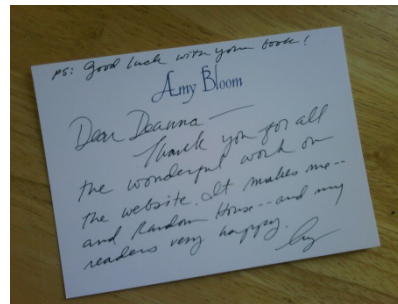 PS: Good luck with your book!
Amy Bloom
Dear Deanna —
Thank you for all
the wonderful work on
the website. It makes me --
and Random House -- and my
readers very happy.
Amy